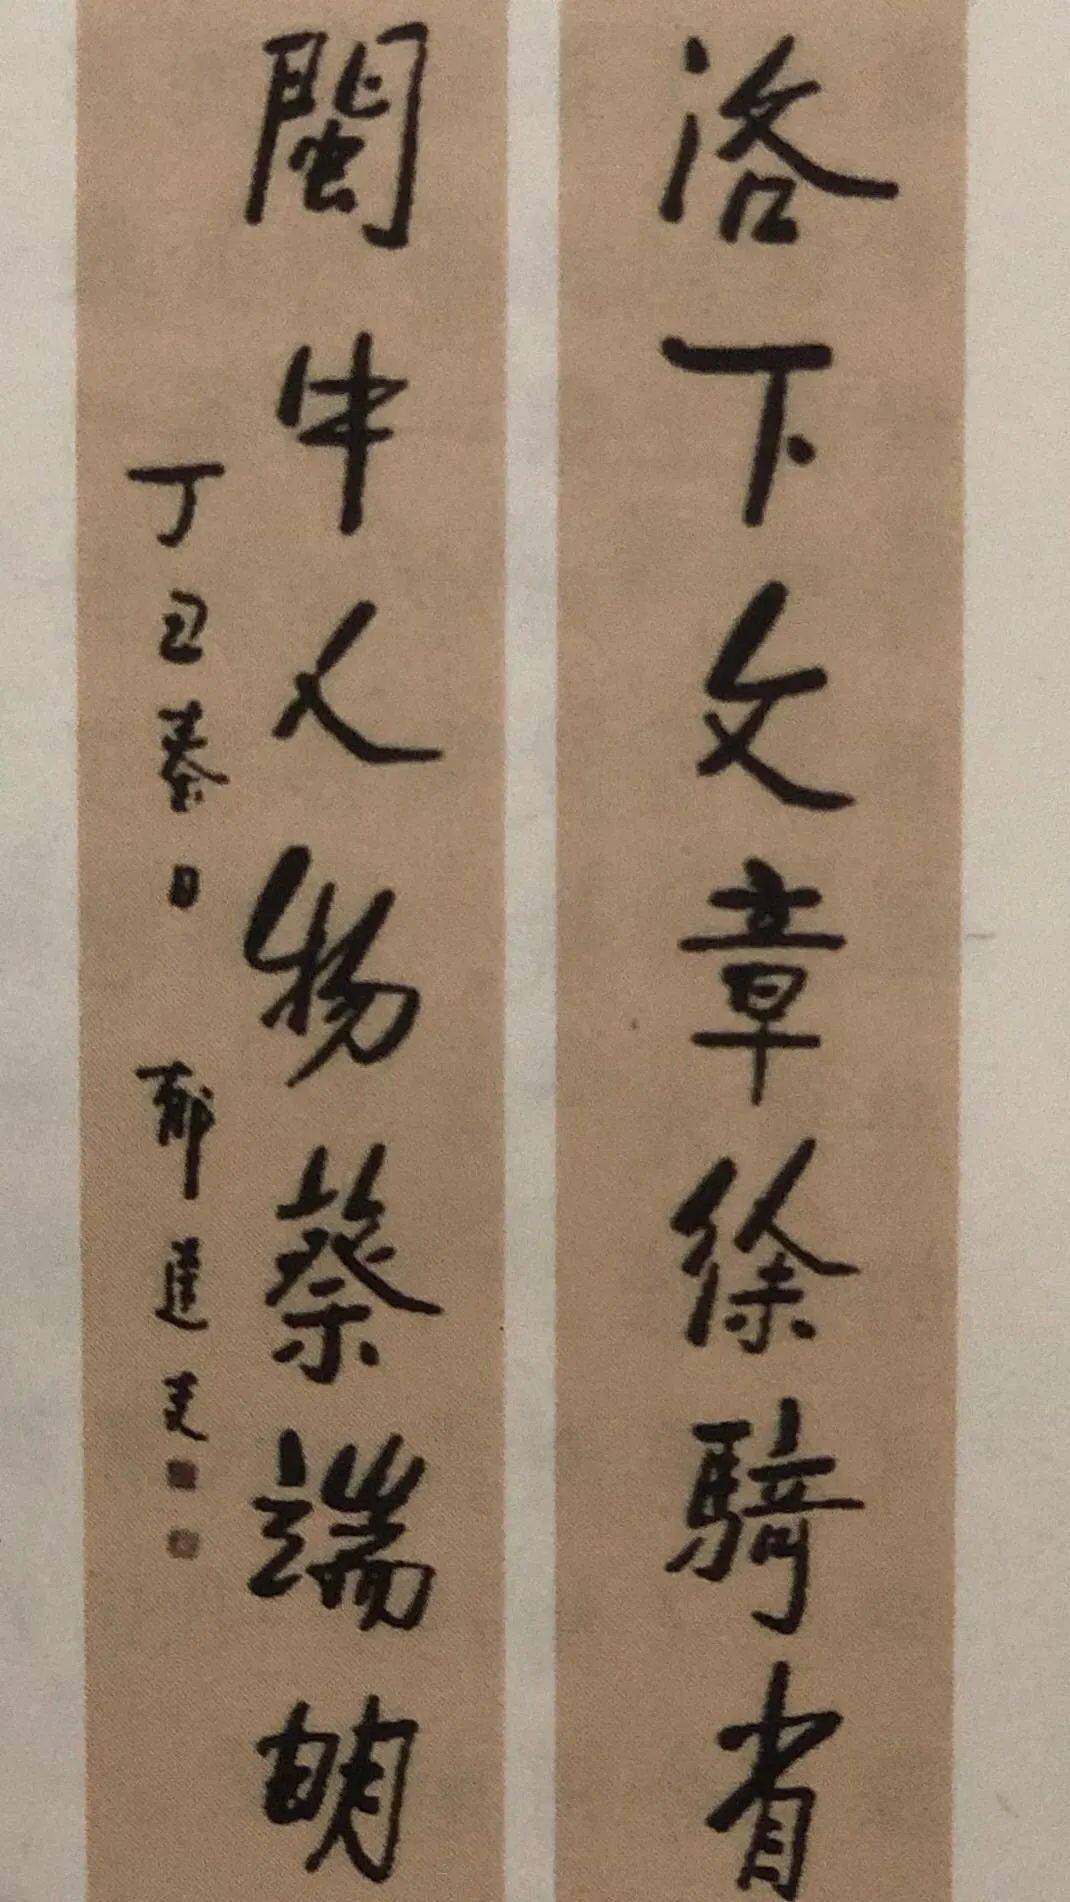 洛下文章徐騎省
閩中人物蔡端明
丁丑春日 郁達夫